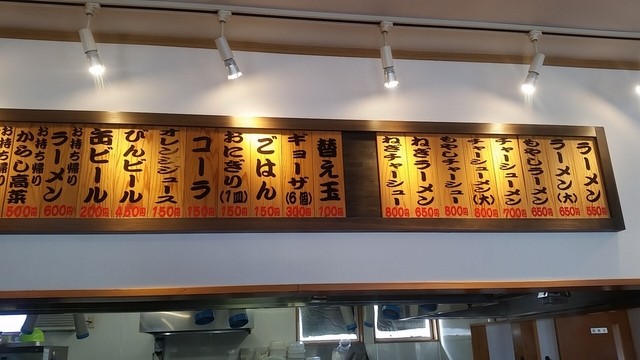 ラーメン 550円
ラーメン(大) 650円
もやしラーメン 650円
チャーシューメン 700円
チャーシューメン(大) 800円
もやしチャーシュー 800円
ねぎラーメン 650円
ねぎチャーシュー 800円
替え玉 100円
ギョーザ(6個) 300円
ごはん 150円
おにぎり(1皿) 150円
コーラ 150円
オレンジジュース 150円
びんビール 450円
缶ビール 200円
お持ち帰り ラーメン 600円
お持ち帰り からし高菜 500円
お持ち帰り